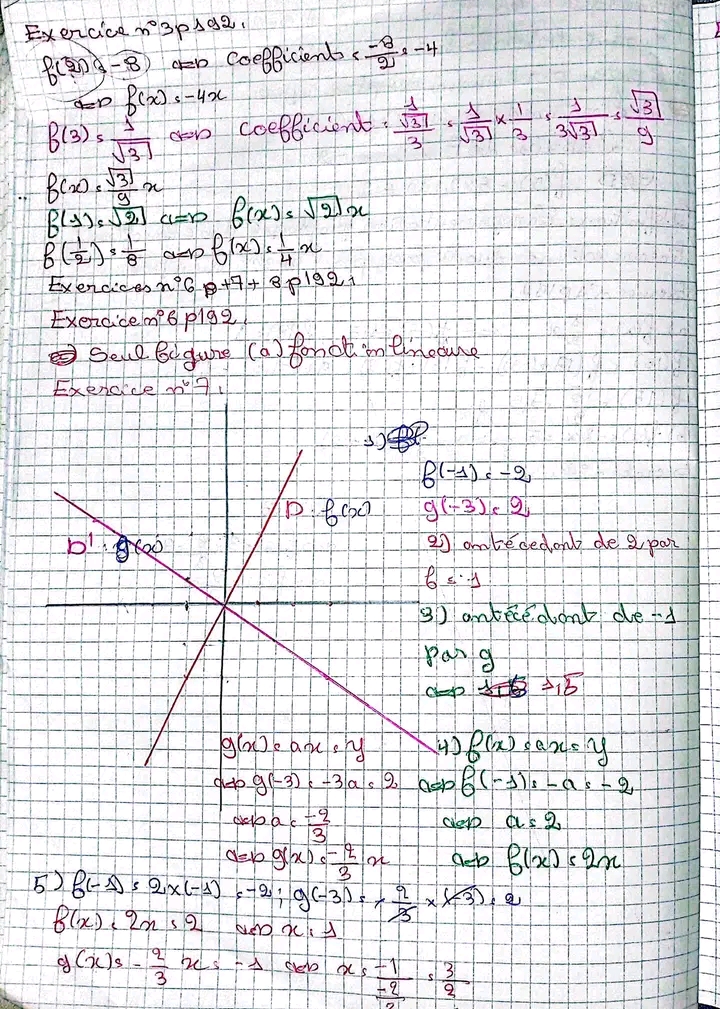 Exercice n°3p192.
f(2) = -8 <=> coefficient = -8/2 = -4
<=> f(x) = -4x
f(3) = 1/√3 <=> coefficient = (1/√3)/3 = 1/√3 × 1/3 = 1/(3√3) = √3/9
f(x) = √3/9 x
f(1) = √2 <=> f(x) = √2 x
f(1/2) = 1/8 <=> f(x) = 1/4 x
Exercices n°6 p+7+8p192.
Exercice n°6 p192.
Seul figure (a) fonction lineaire
Exercice n°7.
1)
f(-1) = -2
D : f(x)
g(-3) = 2
D' : g(x)
2) antécédent de 2 par
f = 1
3) antécédent de -1
par g
<=> 1,5
g(x) = ax = y
<=> g(-3) = -3a = 2
<=> a = -2/3
<=> g(x) = -2/3 x
4) f(x) = ax = y
<=> f(-1) = -a = -2
<=> a = 2
<=> f(x) = 2x
5) f(-1) = 2×(-1) = -2 ; g(-3) = -2/3 × (-3) = 2
f(x) = 2x = 2 <=> x = 1
g(x) = -2/3 x = -1 <=> x = -1/(-2/3) = 3/2